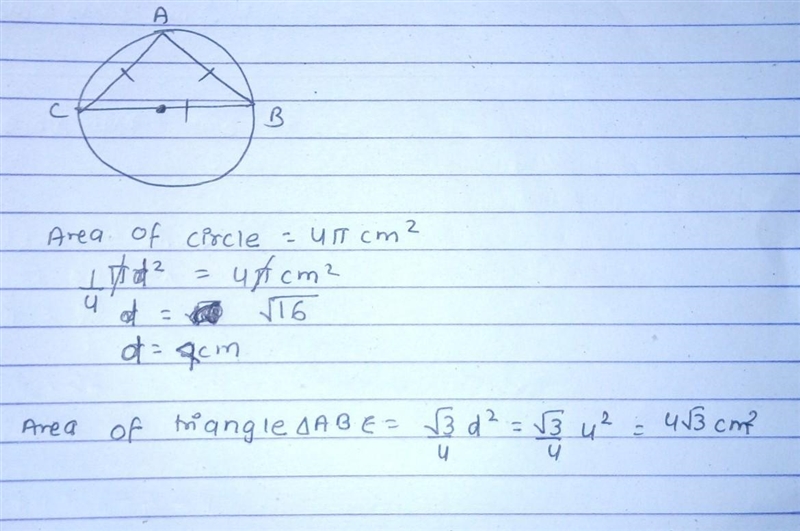 A
C
B
Area of circle = 4π cm²
1/4 πd² = 4π cm²
d = √16
d = 4cm
Area of triangle ΔABC = √3/4 d² = √3/4 4² = 4√3 cm²